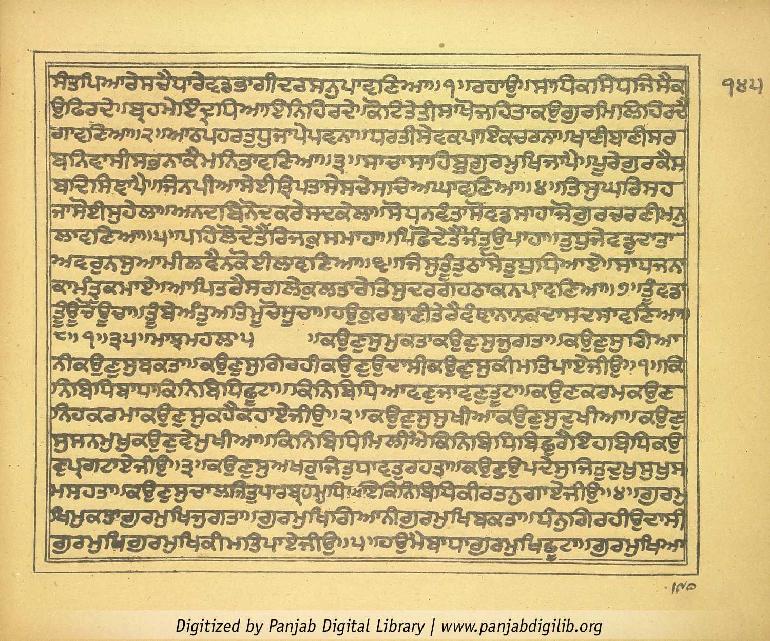 ਸੰਤਪਿਆਰੇਸਚੈਧਾਰੇਵਡਭਾਗੀਦਰਸਨੁਪਾਵਣਿਆ॥੧॥ਰਹਾਉ॥ਸਾਧਿਕਸਿਧਜਿਸੈਕ
ਉਫਿਰਦੇ॥ਬ੍ਰਹਮੇਇੰਦ੍ਰਧਿਆਇਨਿਹਿਰਦੇ॥ਕੋਟਿਤੇਤੀਸਾਖੋਜਹਿਤਾਕਉਗੁਰਮਿਲਿਹਿਰਦੈ
ਗਾਵਣਿਆ॥੨॥ਆਠਪਹਰਤੁਧੁਜਾਪੇਪਵਨਾ॥ਧਰਤੀਸੇਵਕਪਾਇਕਚਰਨਾ॥ਖਾਣੀਬਾਣੀਸਰ
ਬਨਿਵਾਸੀਸਭਨਾਕੈਮਨਿਭਾਵਣਿਆ॥੩॥ਸਾਚਾਸਾਹਿਬੁਗੁਰਮੁਖਿਜਾਪੈ॥ਪੂਰੇਗੁਰਕੈਸ
ਬਦਿਸਿਞਾਪੈ॥ਜਿਨਪੀਆਸੇਈਤ੍ਰਿਪਤਾਸੇਸਚੇਸਾਚਿਅਘਾਵਣਿਆ॥੪॥ਤਿਸੁਘਰਿਸਹ
ਜਾਸੋਈਸੁਹੇਲਾ॥ਅਨਦਬਿਨੋਦਕਰੇਸਦਕੇਲਾ॥ਸੋਧਨਵੰਤਾਸੋਵਡਸਾਹਾਜੋਗੁਰਚਰਣੀਮਨੁ
ਲਾਵਣਿਆ॥੫॥ਪਹਿਲੋਦੇਤੈਂਰਿਜਕੁਸਮਾਹਾ॥ਪਿਛੋਦੇਤੈਂਜੰਤੁਉਪਾਹਾ॥ਤੁਧੁਜੇਵਡੁਦਾਤਾ
ਅਵਰੁਨਸੁਆਮੀਲਵੈਨਕੋਈਲਾਵਣਿਆ॥੬॥ਜਿਸੁਤੂੰਤੁਠਾਸੋਤੁਧੁਧਿਆਏ॥ਸਾਧਜਨਾ
ਕਾਮੰਤ੍ਰੁਕਮਾਏ॥ਆਪਿਤਰੈਸਗਲੇਕੁਲਤਾਰੇਤਿਸੁਦਰਗਹਠਾਕਨਪਾਵਣਿਆ॥੭॥ਤੂੰਵਡਾ
ਤੂੰਊਚੋਊਚਾ॥ਤੂੰਬੇਅੰਤੁਅਤਿਮੂਚੋਮੂਚਾ॥ਹਉਕੁਰਬਾਣੀਤੇਰੈਵੰਞਾਨਾਨਕਦਾਸਦਸਾਵਣਿਆ॥
੮॥੧॥੩੫॥ਮਾਝਮਹਲਾ੫ ॥ਕਉਣੁਸੁਮੁਕਤਾਕਉਣੁਸੁਜੁਗਤਾ॥ਕਉਣੁਸੁਗਿਆ
ਨੀਕਉਣੁਸੁਬਕਤਾ॥ਕਉਣੁਸੁਗਿਰਹੀਕਉਣੁਉਦਾਸੀਕਉਣੁਸੁਕੀਮਤਿਪਾਏਜੀਉ॥੧॥ਕਿ
ਨਿਬਿਧਿਬਾਧਾਕਿਨਿਬਿਧਿਛੂਟਾ॥ਕਿਨਿਬਿਧਿਆਵਣੁਜਾਵਣੁਤੂਟਾ॥ਕਉਣਕਰਮਕਉਣ
ਨਿਹਕਰਮਾਕਉਣੁਸੁਕਹੈਕਹਾਏਜੀਉ॥੨॥ਕਉਣੁਸੁਸੁਖੀਆਕਉਣੁਸੁਦੁਖੀਆ॥ਕਉਣੁ
ਸੁਸਨਮੁਖੁਕਉਣੁਵੇਮੁਖੀਆ॥ਕਿਨਿਬਿਧਿਮਿਲੀਐਕਿਨਿਬਿਧਿਬਿਛੁਰੈਇਹਬਿਧਿਕਉ
ਣੁਪ੍ਰਗਟਾਏਜੀਉ॥੩॥ਕਉਣੁਸੁਅਖਰੁਜਿਤੁਧਾਵਤੁਰਹਤਾ॥ਕਉਣੁਉਪਦੇਸੁਜਿਤੁਦੁਖੁਸੁਖੁਸ
ਮਸਹਤਾ॥ਕਉਣੁਸੁਚਾਲਜਿਤੁਪਾਰਬ੍ਰਹਮੁਧਿਆਏਕਿਨਿਬਿਧਿਕੀਰਤਨੁਗਾਏਜੀਉ॥੪॥ਗੁਰਮੁ
ਖਿਮੁਕਤਾਗੁਰਮੁਖਿਜੁਗਤਾ॥ਗੁਰਮੁਖਿਗਿਆਨੀਗੁਰਮੁਖਿਬਕਤਾ॥ਧੰਨੁਗਿਰਹੀਉਦਾਸੀ
ਗੁਰਮੁਖਿਗੁਰਮੁਖਿਕੀਮਤਿਪਾਏਜੀਉ॥੫॥ਹਉਮੈਬਾਧਾਗੁਰਮੁਖਿਛੂਟਾ॥ਗੁਰਮੁਖਿਆ
੧੪੫
Digitized by Panjab Digital Library | www.panjabdigilib.org